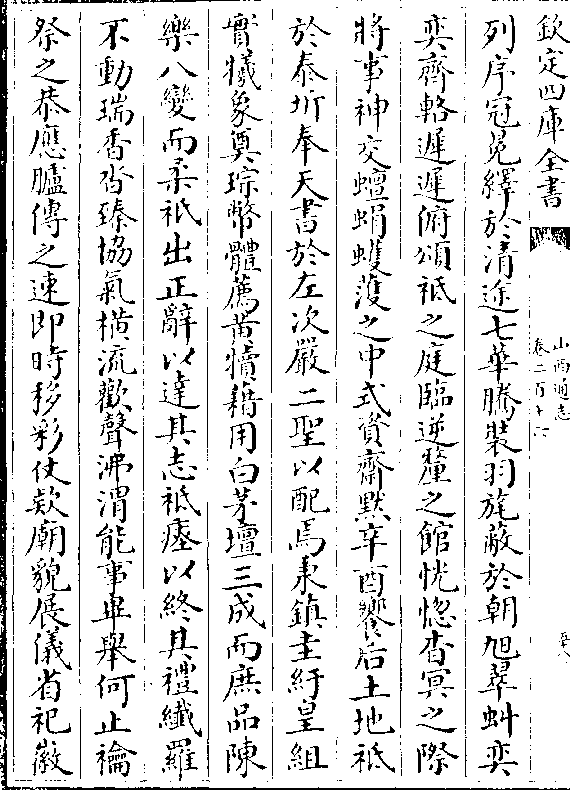 欽定四庫全書
山西通志
卷二百十六
列序冠冕繹於清途七華騰裝羽旄蔽於朝旭翠虯奕
奕齊輅遲遲俯頌祗之庭臨逆釐之館恍惚杳冥之際
將事神交蟺蜎蠖濩之中式資齋默辛酉饗后土地祗
於泰圻奉天書於左次嚴二聖以配焉秉鎮圭紆皇組
實犧象奠琮幣體薦黃犢藉用白茅壇三成而庶品陳
樂八變而柔祇出正辭以達其志祗瘞以終其禮纖羅
不動瑞香沓臻協氣橫流歡聲沸渭能事畢舉何止禬
祭之恭應臚傳之速即時移彩仗欵廟貌展儀省祀徽